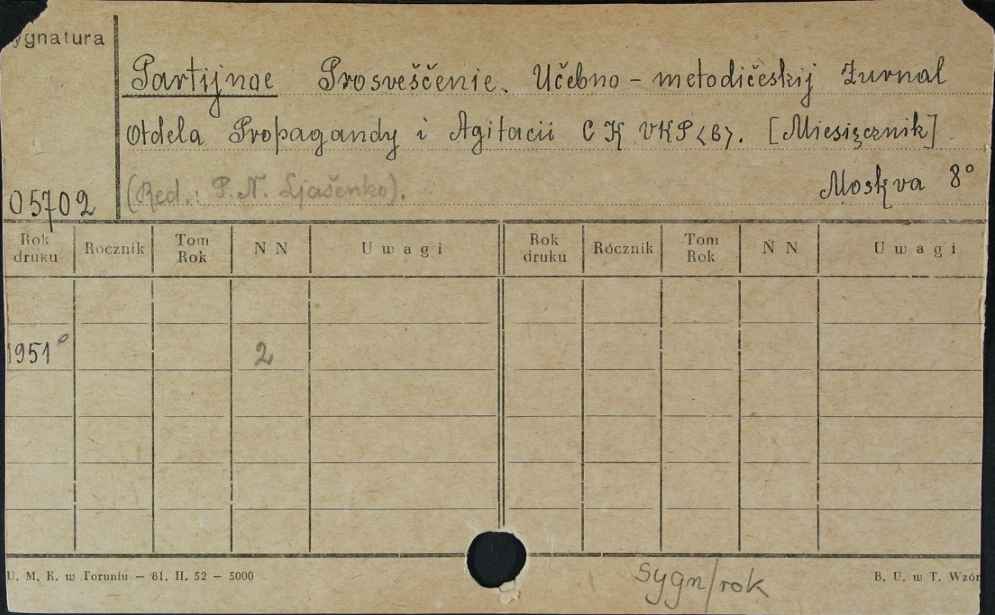 Sygnatura
Partijnoe Prosveščenie. Učebno-metodičeskij Žurnal
Otdela Propagandy i Agitacii CK VKP<b>. [Miesięcznik]
05702 (Red.: P. N. Ljašenko). Moskva 8°
Rok druku Rocznik Tom Rok N N Uwagi Rok druku Rocznik Tom Rok N N Uwagi
1951 2
U. M. K. w Toruniu — 81. II. 52 — 5000 Sygn/rok B. U. w T. Wzór